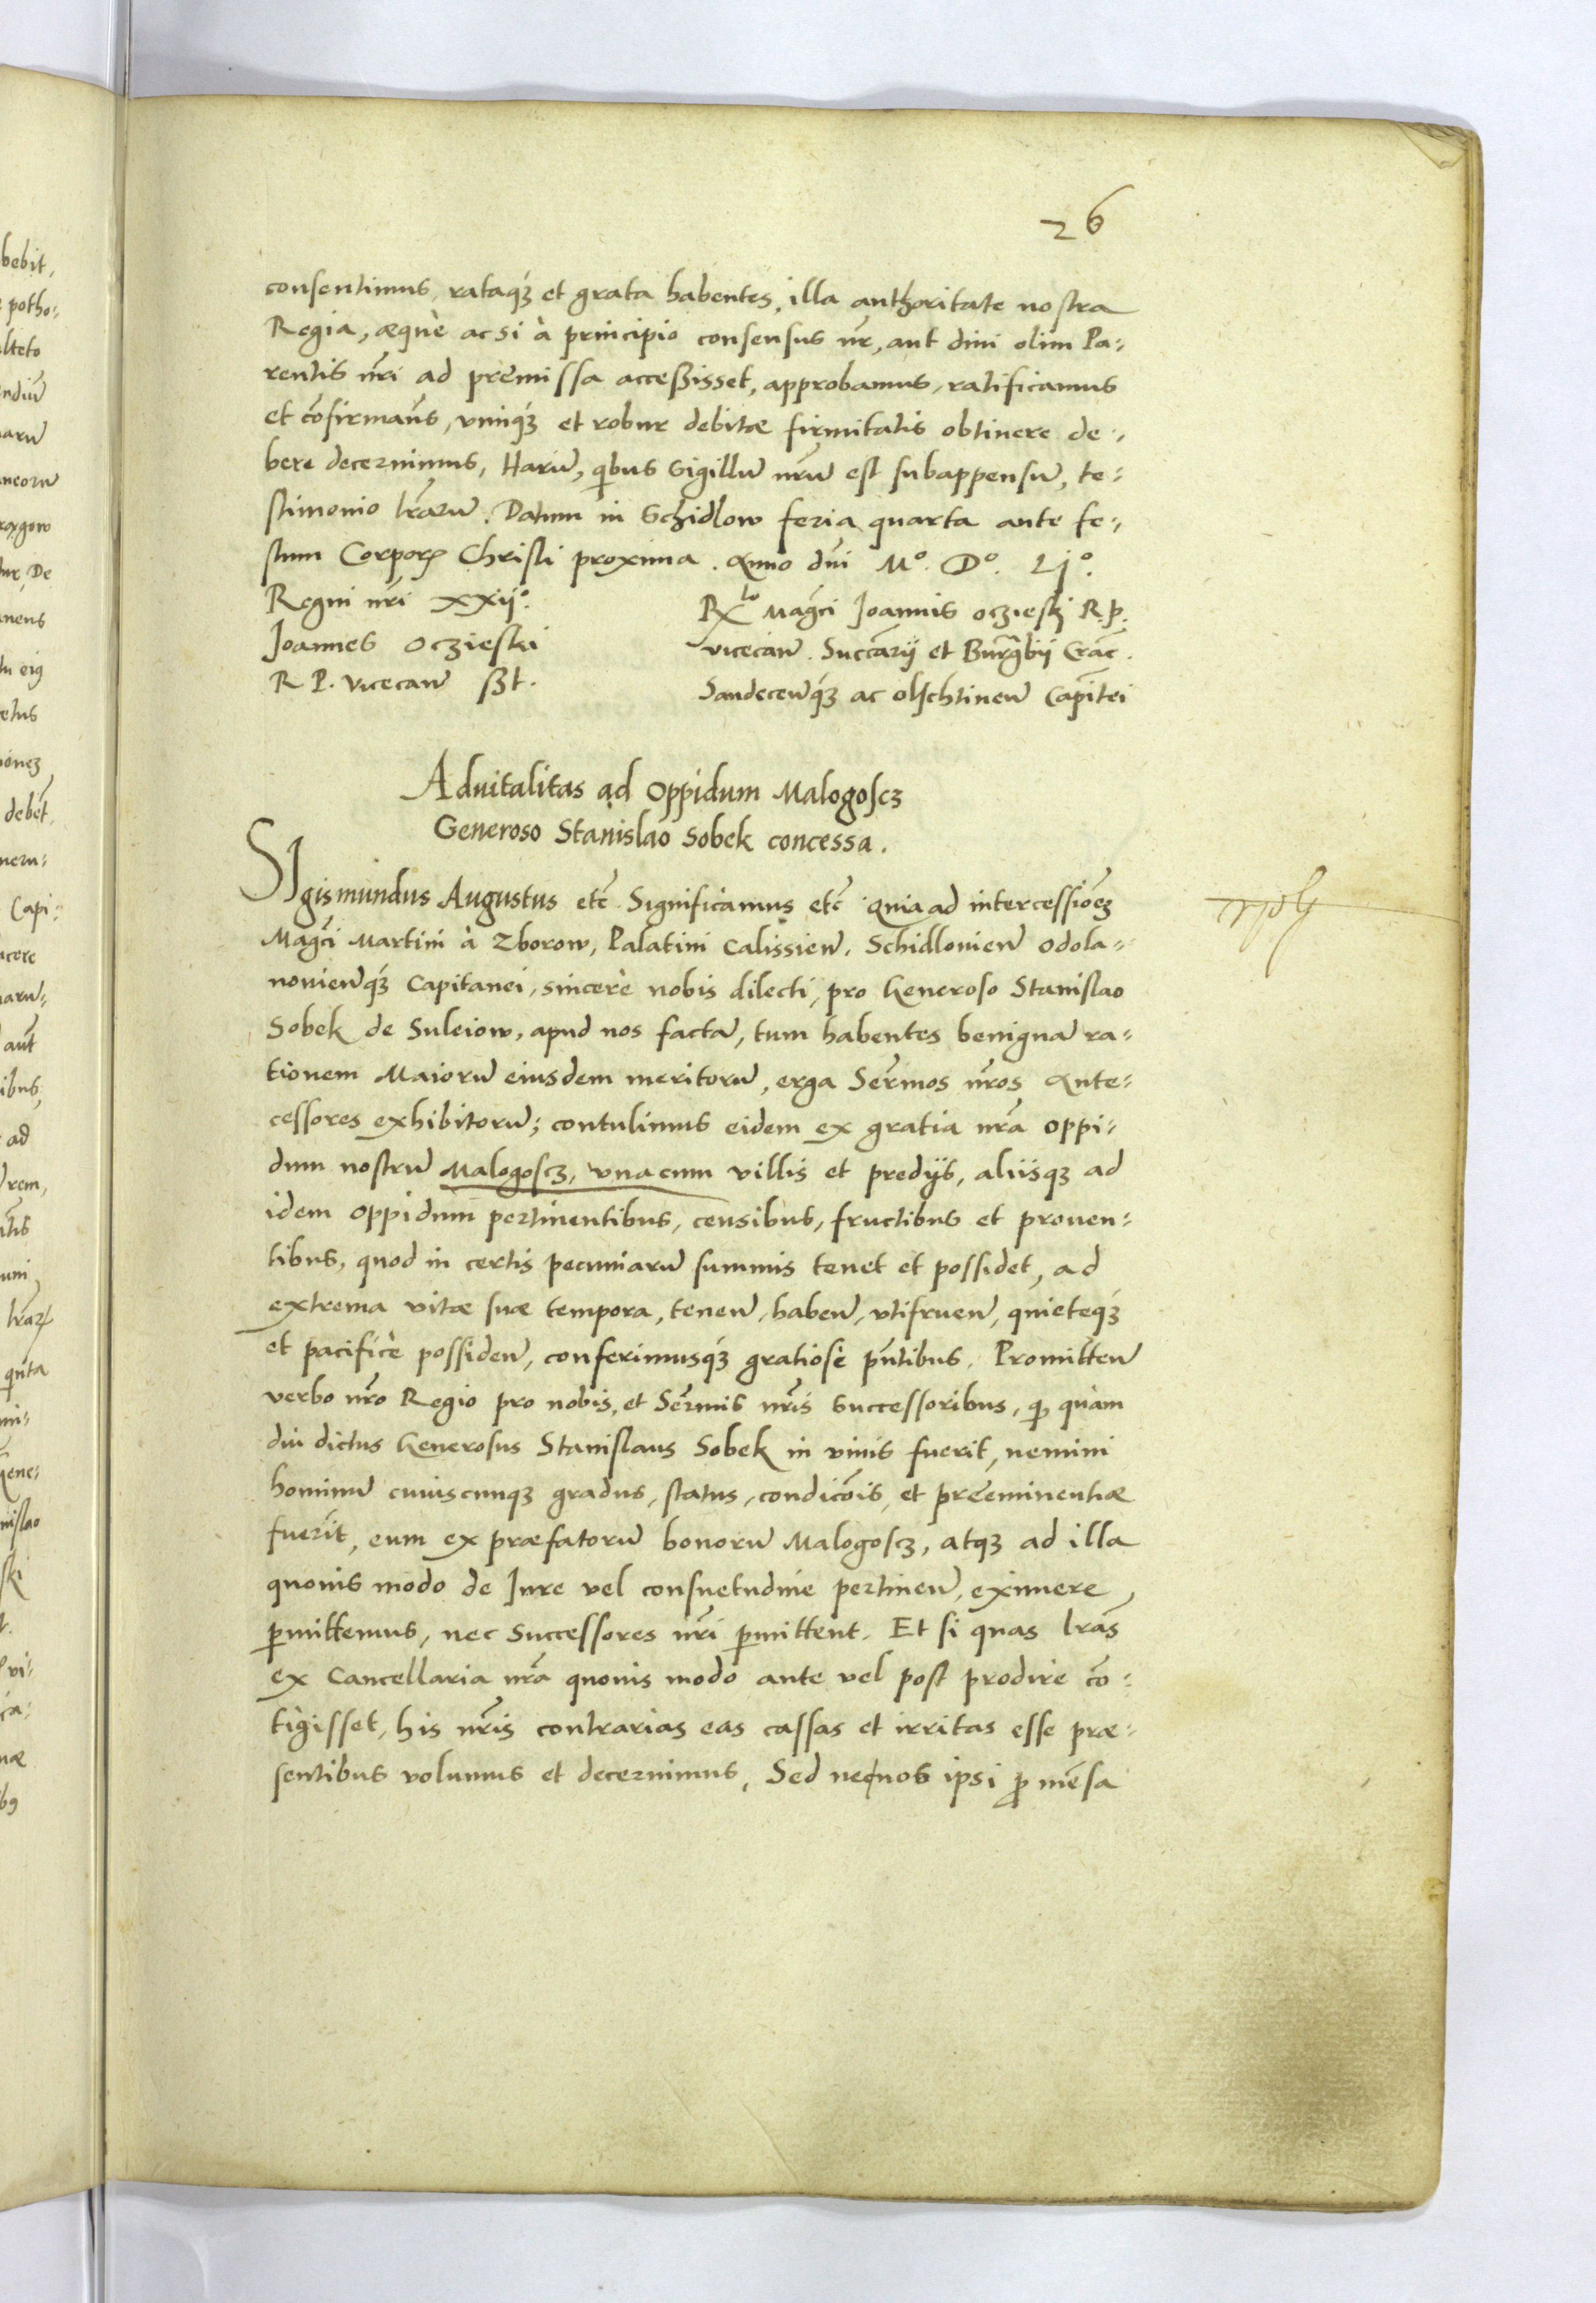 26
consentimus, rataq́ꝫ et grata habentes, illa authoritate nostra
Regia, æquè ac si à principio consensus nr̄, aut diui olim Pa⸗
rentis nr̄i ad premissa acceßisset, approbamus, ratificamus
et cōfirmam̄s, vimq́ꝫ et robur debitæ firmitatis obtinere de⸗
bere decernimus, Harū, qͥbus Sigillū nr̄ū est subappensū, te⸗
stimonio lr̄arū. Datum in Schidlow feria quarta ante fe⸗
stum Corporꝭ Christi proxima. Anno dn̄i Mº. Dº. Ljº.
Regni nr̄i xxijº.
Joannes Oczieski
R P. Vicecan̄ ßt.
Rlo Maḡci Joannis Oczieski R. P.
Vicecan̄. Succār̄ij et Burgr̄bij Crac̄.
Sandecen̄q́ꝫ ac Olschtinen̄ Capit̄ei
Aduitalitas ad Oppidum Malogoscz
Generoso Stanislao Sobek concessa.
SIgismundus Augustus etc̄ Significamus etc̄ Quia ad intercessiōeꝫ
Maḡci Martini à Zborow, Palatini Calissien̄, Schidlouien̄ Odola⸗
nouien̄q́ꝫ Capitanei, sincerè nobis dilecti, pro Generoso Stanislao
Sobek de Suleiow, apud nos factā, tum habentes benignā ra⸗
tionem Maiorū eiusdem meritorū, erga Ser̄mos nr̄os Ante⸗
cessores exhibitorū; contulimus eidem ex gratia nr̄a Oppi⸗
dum nostrū Malogoscz, vnacum villis et predijs, aliisqꝫ ad
idem Oppidum pertinentibus, censibus, fructibus et prouen⸗
tibus, quod in certis pecuniarū summis tenet et possidet, ad
extrema vitæ suæ tempora, tenen̄, haben̄, vtifruen̄, quieteq́ꝫ
et pacificè possiden̄, conferimusq́ꝫ gratiosè pn̄tibus. Promitten̄
verbo nr̄o Regio pro nobis, et Ser̄mis nr̄is Successoribus, qͩ quàm
diu dictus Generosus Stanislaus Sobek in viuis fuerit, nemini
hominū cuiuscunqꝫ gradus, status, condic̄ōis, et preēminentiæ
fuerīt, eum ex præfatorū bonorū Malogoscz, atqꝫ ad illa
quouis modo de Jure vel consuetudine pertinen̄, eximere
ꝑmittemus, nec Successores nr̄i ꝑmittent. Et si quas lr̄as
ex Cancellaria nr̄a quouis modo ante vel post prodire cō⸗
tigisset, his nr̄is contrarias eas cassas et irritas esse præ⸗
sentibus volumus et decernimus, Sed nec nos ipsi ꝓ mēsa